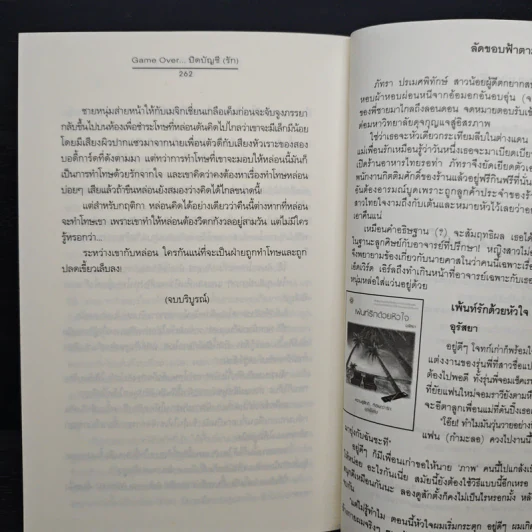 Game Over... ปิดบัญชี (รัก)
262
ชายหนุ่มส่ายหน้าให้กับเมจิกเชี่ยนเกลือเค็มก่อนจะจับจูงภรรยา
กลับขึ้นไปบนห้องเพื่อชำระโทษที่หล่อนดันคิดไปไกลว่าเขาจะมีเล็กมีน้อย
โดยมีเสียงผิวปากแซวมาจากนายเพื่อนตัวดีกับเสียงหัวเราะของสอง
บอดี้การ์ดที่ดังตามมา แต่ทว่าการทำโทษที่เขาจะมอบให้หล่อนนี้มันก็
เป็นการทำโทษด้วยรักจากใจ และเขาคิดว่าคงต้องหาเรื่องทำโทษหล่อน
บ่อยๆ เสียแล้วถ้าขืนหล่อนยังสมองว่างคิดได้ไกลขนาดนี้!
แต่สำหรับกฤติกา หล่อนคิดได้อย่างเดียวว่าคืนนี้ต่างหากที่หล่อน
จะทำโทษเขา เพราะเขาทำให้หล่อนต้องวิตกกังวลอยู่สามวัน แต่ไม่มีใคร
รู้หรอกว่า...
ระหว่างเขากับหล่อน ใครกันแน่ที่จะเป็นฝ่ายถูกทำโทษและถูก
ปลดเขี้ยวเล็บลง!
(จบบริบูรณ์)
ลัดขอบฟ้าตา
ภัทรา ปรเมศพิทักษ์ สาวน้อยผู้ดีตกยากส
หอบผ้าหอบผ่อนหนีจากอ้อมอกอันอบอุ่น (จ
ของพี่ชายมาไกลถึงลอนดอน จดหมายตอบรับเข้
ต่อมหาวิทยาลัยดุจกุญแจสู่อิสรภาพ
ใช่ว่าเธอจะหัวเดียวกระเทียมลีบในต่างแดน
แม่เพื่อนรักเหมือนรู้ว่าวันหนึ่งเธอจะมาเบียดเบีย
เปิดร้านอาหารไทยรอท่า ภัทราจึงยัดเยียดตัวเอ
พนักงานกิตติมศักดิ์ของร้านแล้วอยู่ฟรีกินฟรีที่นั่น
อันต้องอารมณ์บูดเพราะถูกลูกค้าประจำของร้า
สาวไทยใจงามถึงกับเต้นและหมายหัวไว้เลยว่าอย
เอาคืนแน่
เหมือนคำอธิษฐาน (?) จะสัมฤทธิผล เธอได้
ในฐานะลูกศิษย์กับอาจารย์ที่ปรึกษา! หญิงสาวไม่
จึงพยายามข้องเกี่ยวกับนายคาสโนว่าคนนี้เฉพาะเรื่
เอ็ดเวิร์ด เอิร์ลถึงทำเกินหน้าที่อาจารย์เฉพาะกับเธ
หนุ่มหล่อใส่แว่นอยู่ด้วย
เพ้นท์รักด้วยหัวใจ
อุรัสยา
เพ้นท์รักด้วยหัวใจ
อยู่ดีๆ โจทก์เก่าก็พร้อมใ
แต่งงานของรุ่นพี่ที่สาวชื่อแป
ต้องไปพอดี ทั้งรุ่นพี่จอมเชิดเร
ที่ยัยแฟนใหม่จอมราวียังตามห
จะอีตาลูกเพื่อนแม่ที่ดันปิ๊งเธอ
"โอ๊ย! ทำไมมันวุ่นวายอย่าง
แฟน (กำมะลอ) ควงไปงานนี้
มายุ่งกับฉันซะที"
อยู่ดีๆ ก็มีเพื่อนเก่าขอให้นาย 'ภาพ' คนนี้ไปแกล้งเป็